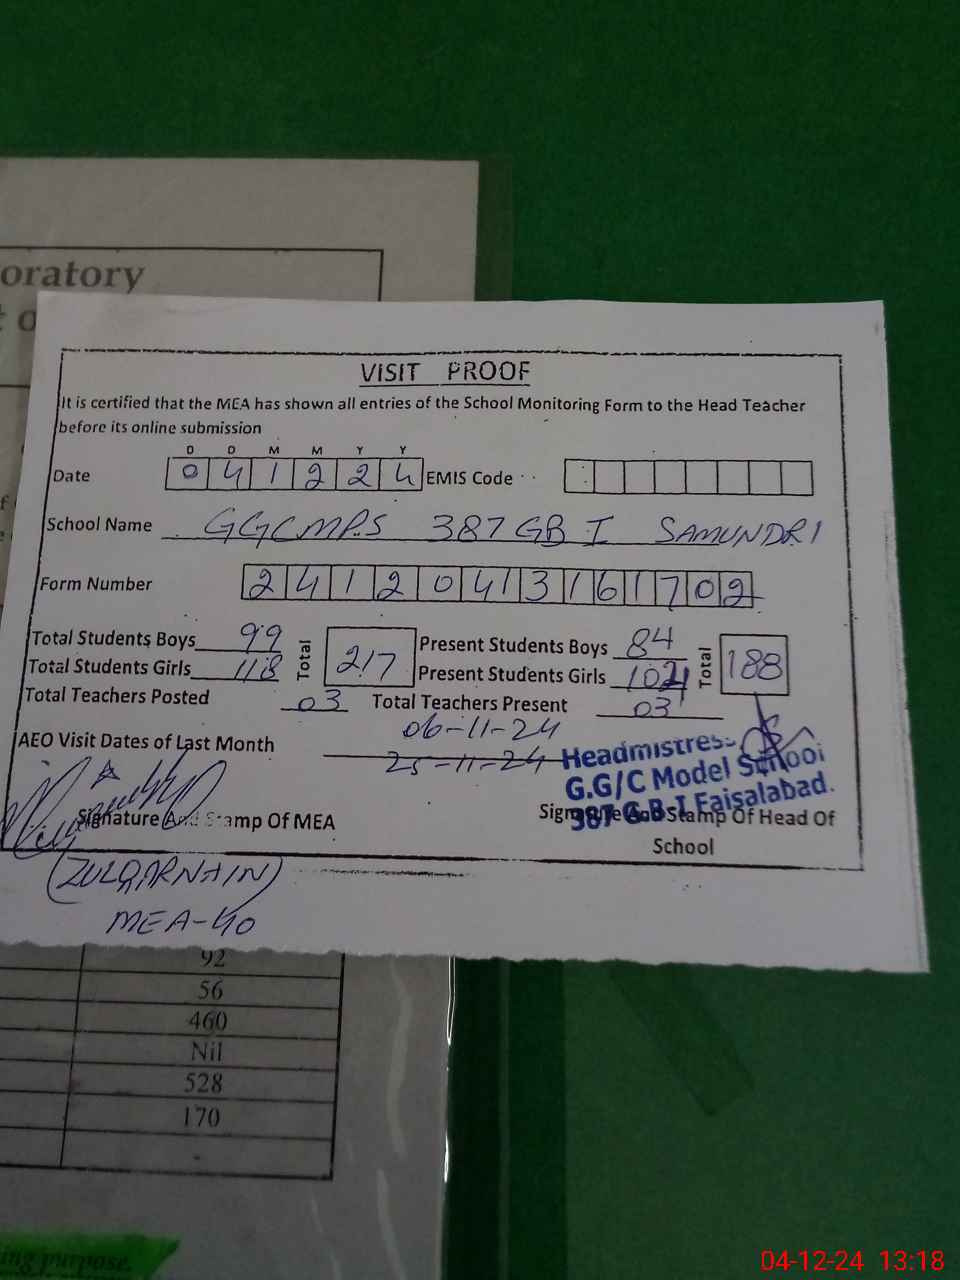 oratory
VISIT PROOF
It is certified that the MEA has shown all entries of the School Monitoring Form to the Head Teacher
before its online submission
D D M M Y Y
Date 0 4 1 2 2 4 EMIS Code
School Name GGCMPS 387 GB I SAMUNDRI
Form Number 2 4 1 2 0 4 1 3 1 6 1 7 0 2
Total Students Boys 99 Total 217 Present Students Boys 84 Total 188
Total Students Girls 118 Present Students Girls
Total Teachers Posted 03 Total Teachers Present 03
06-11-24
AEO Visit Dates of Last Month
25-11-24
Headmistress
G.G/C Model School
387 G.B-I Faisalabad.
Signature And Stamp Of MEA
Signature And Stamp Of Head Of
School
(ZULQARNAIN)
MEA-40
92
56
460
Nil
528
170
-
ing purpose.
04-12-24 13:18